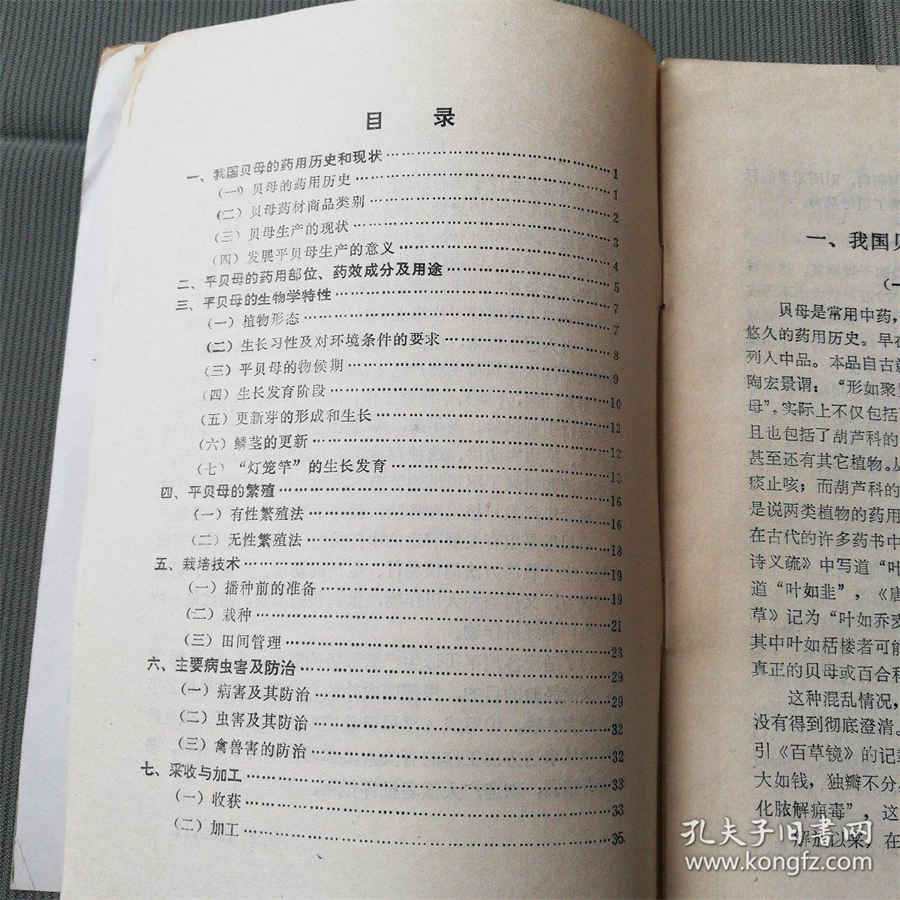 目 录
一、我国贝母的药用历史和现状……1
（一）贝母的药用历史……1
（二）贝母药材商品类别……2
（三）贝母生产的现状……3
（四）发展平贝母生产的意义……4
二、平贝母的药用部位、药效成分及用途……5
三、平贝母的生物学特性……7
（一）植物形态……7
（二）生长习性及对环境条件的要求……8
（三）平贝母的物候期……9
（四）生长发育阶段……10
（五）更新芽的形成和生长……12
（六）鳞茎的更新……12
（七）“灯笼竿”的生长发育……13
四、平贝母的繁殖……16
（一）有性繁殖法……16
（二）无性繁殖法……18
五、栽培技术……19
（一）播种前的准备……19
（二）栽种……21
（三）田间管理……23
六、主要病虫害及防治……29
（一）病害及其防治……29
（二）虫害及其防治……32
（三）禽兽害的防治……32
七、采收与加工……33
（一）收获……33
（二）加工……35
一、我国贝
（一
贝母是常用中药，
悠久的药用历史。早在
列入中品。本品自古
陶宏景谓：“形如聚贝
母”，实际上不仅包括
且也包括了葫芦科的
甚至还有其它植物。从
痰止咳；而葫芦科的
是说两类植物的药用
在古代的许多药书中
诗义疏》中写道“叶
道“叶如韭”，《唐
草》记为“叶如乔麦
其中叶如栝楼者可能
真正的贝母或百合科
这种混乱情况，
没有得到彻底澄清。
引《百草镜》的记载
大如钱，独瓣不分，
化脓解痈毒”，这
解放以来，在
孔夫子旧书网
www.kongfz.com